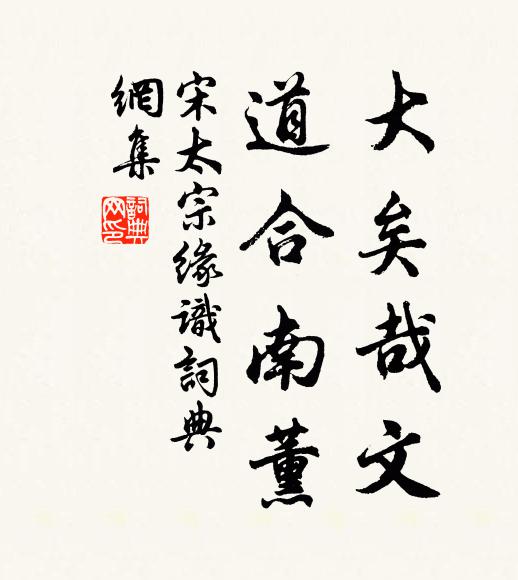 大矣哉文
道合南薰
宋太宗緣識詞典
網集
詞典
网印